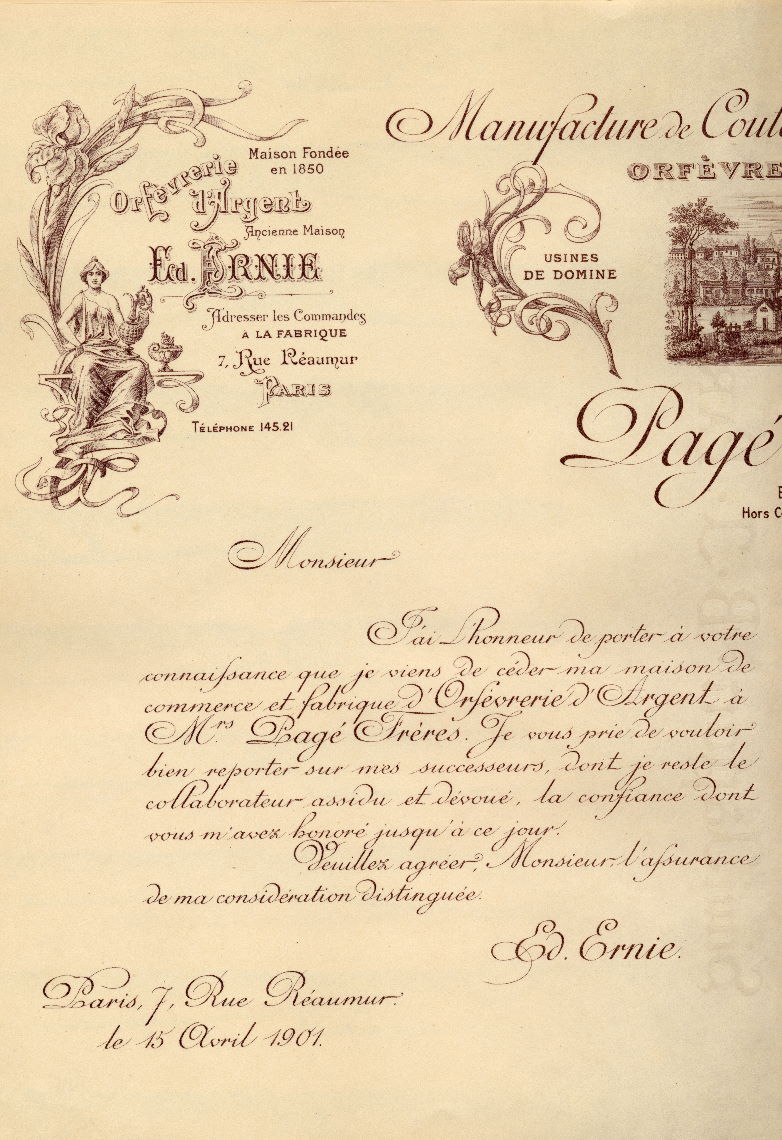 Maison Fondée
en 1850
Orfèvrerie
d'Argent
Ancienne Maison
Ed. ERNIE
Adresser les Commandes
À LA FABRIQUE
7, Rue Réaumur
PARIS
TÉLÉPHONE 145.21
Manufacture de Coute
ORFÈVRE
USINES
DE DOMINE
Pagé
Hors C
Monsieur
J'ai l'honneur de porter à votre
connaissance que je viens de céder ma maison de
commerce et fabrique d'Orfèvrerie d'Argent à
Mrs. Pagé Frères. Je vous prie de vouloir
bien reporter sur mes successeurs, dont je reste le
collaborateur assidu et dévoué, la confiance dont
vous m'avez honoré jusqu'à ce jour.
Veuillez agréer, Monsieur, l'assurance
de ma considération distinguée.
Ed. Ernie.
Paris, 7, Rue Réaumur.
le 15 Avril 1901.